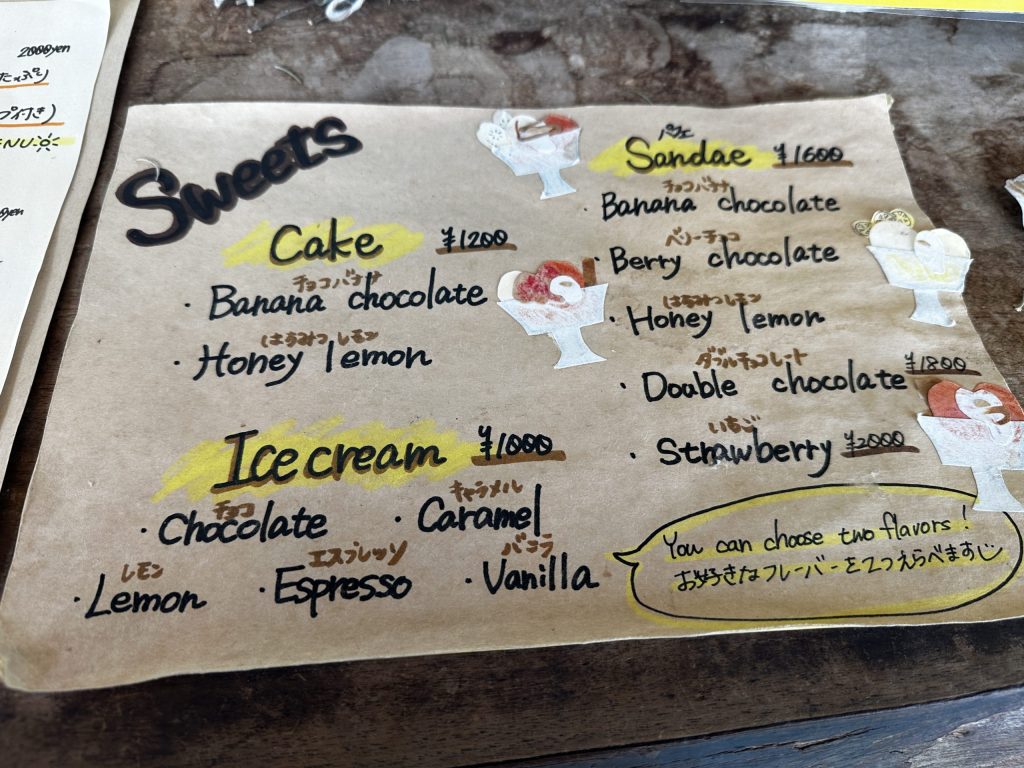 2000yen
たっぷり
プ付き)
ENU
0yen
Sweets
Cake ¥1200
チョコバナナ
・Banana chocolate
はちみつレモン
・Honey lemon
Ice cream ¥1000
チョコ
・Chocolate
キャラメル
・Caramel
レモン
・Lemon
エスプレッソ
・Espresso
バニラ
・Vanilla
パフェ
Sandae ¥1600
チョコバナナ
・Banana chocolate
ベリーチョコ
・Berry chocolate
はちみつレモン
・Honey lemon
ダブルチョコレート
・Double chocolate ¥1800
いちご
・Strawberry ¥2000
You can choose two flavors!
お好きなフレーバーを2つえらべます